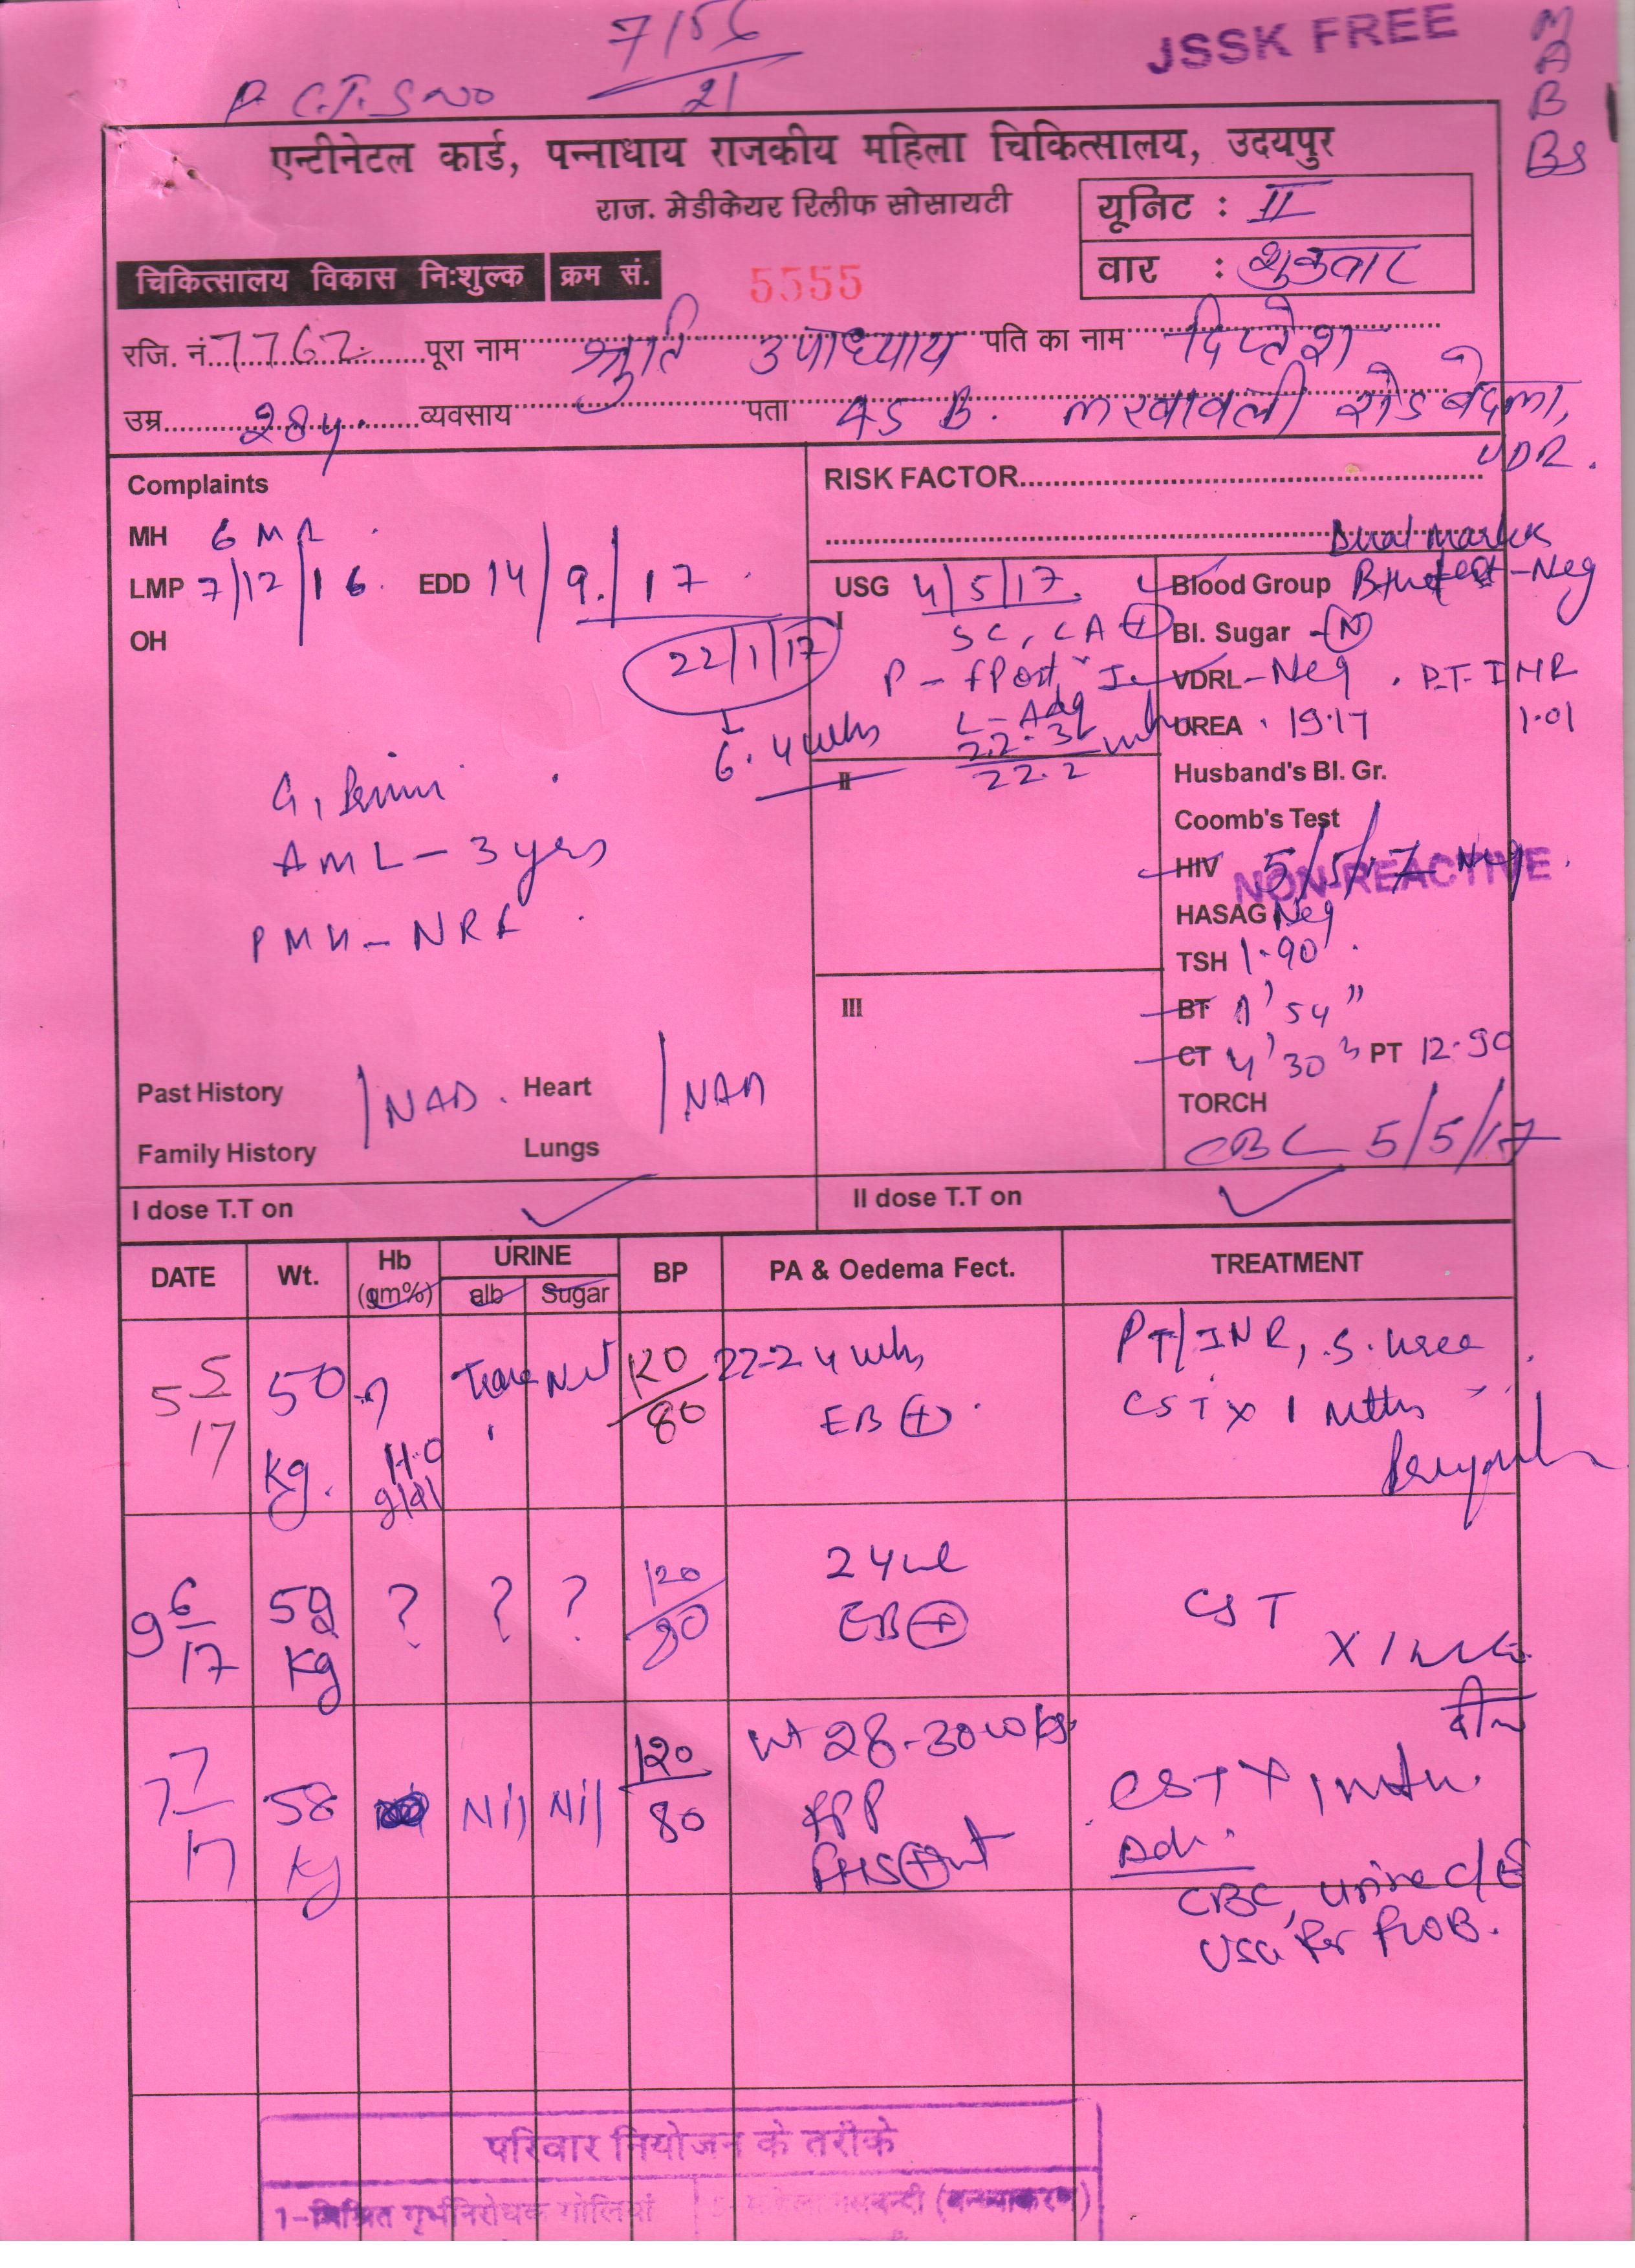 7/56
21
P.C.T.S NO
JSSK FREE
M
A
B
BS
एन्टीनेटल कार्ड, पन्नाधाय राजकीय महिला चिकित्सालय, उदयपुर
राज. मेडीकेयर रिलीफ सोसायटी
यूनिट : II
वार : शुक्रवार
चिकित्सालय विकास निःशुल्क क्रम सं. 5555
रजि. नं. 7762 पूरा नाम श्रुति उपाध्याय पति का नाम दिप्तेश
उम्र 28y. व्यवसाय पता 45 B. लखावली रोड बेदला,
UDR.
Complaints
MH 6 M
LMP 7/12/16. EDD 14/9/17
OH
22/1/17
6.4 wks
G1 Primi
AML - 3 yrs
PMH - NRF
Past History NAD. Heart NAD
Family History Lungs
RISK FACTOR
Dual markes
USG 4/5/17.
I
SC, CA +
L - Adq
22.2
II
III
Blood Group B+ve - Neg
Bl. Sugar - N
VDRL - Neg . PT INR
UREA 19.17 1.01
Husband's Bl. Gr.
Coomb's Test
HIV 5/5/17 Neg.
NON-REACTIVE
HASAG Neg
TSH 1.90
BT 1' 54"
CT 4' 30" PT 12.90
TORCH
CBC 5/5/17
I dose T.T on ✓ II dose T.T on ✓
DATE Wt. Hb (gm%) URINE alb Sugar BP PA & Oedema Fect. TREATMENT
5 5/17 50 kg. 11.0 g/dl Trace Nil 120/80 22-24 wks EB + PT/INR, S. Urea
CST x 1 mths
9 6/17 59 Kg ? ? ? 120/80 24 EB + CST
X 1
7 7/17 58 Kg Nil Nil 120/80 Ut 28-30 wks FHS + CST X 1 mth.
Adv.
CBC, urine c/E
USG for FWB.
परिवार नियोजन के तरीके
1-मिश्रित गर्भनिरोधक गोलियां नसबन्दी (बन्ध्याकरण)